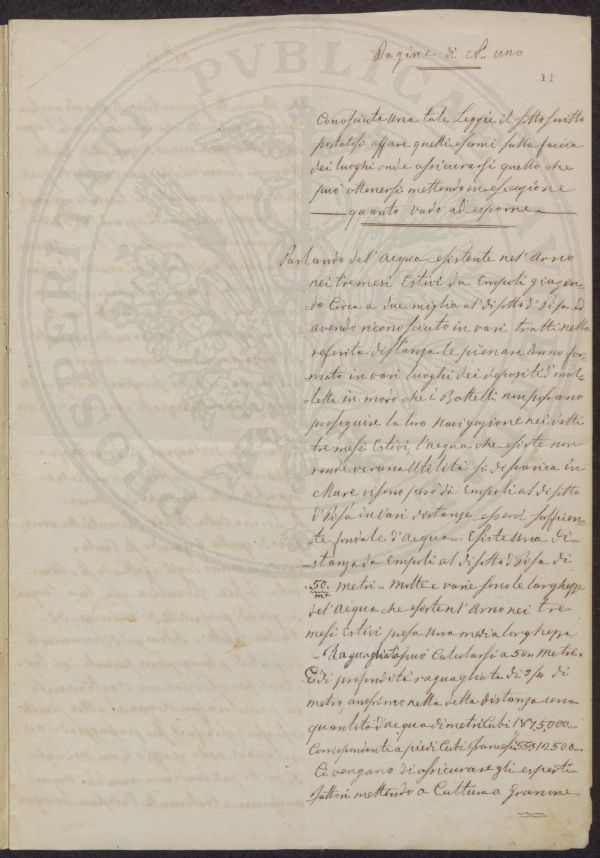 Pagine di N. uno
11
Conosciuta una tale Leggie il sottoscritto
portatosi affare quelli esami sulla faccia
dei luoghi onde assicurarsi quello che
può ottenersi mettendo in
quanto vado ad esporre
Parlando del'Acqua esistente nel'Arno
nei tre mesi Estivi da Empoli
do Circa a due miglia al'disotto d'Pisa ed
avendo riconosciuto in vari tratti nella
referita distanza le pienare anno for=
=mato in vari luoghi dei depositi d'mol=
=letta in modo che i Battelli non possano
proseguire la loro Navigazione nei detti
tre mesi Estivi, l'acqua che esiste non
rende veruna Utilità si discarica in
Mare visono però da Empoli al disotto
d'Pisa in vari distanze esservi sufficien=
=te fondale d'acqua. Esiste una di=
=stanza da Empoli al disotto d'Pisa di
50. metri - Molte e varie sono le larghezze
del'Acqua che esiste nel'Arno nei tre
mesi Estivi presa una media larghezza
Raguagliata può Calcolarsi a 50 metri
E di profondità raguagliata di 3/4 di
metro avessimo nella detta distanza una
quantità d'acqua di metri Cubi 1875,000..
Corrispondente a piedi Cubi francesi 55312500...
Ci vengano di assicurare gli esperti
fattori mettendo a Cultura a Granone